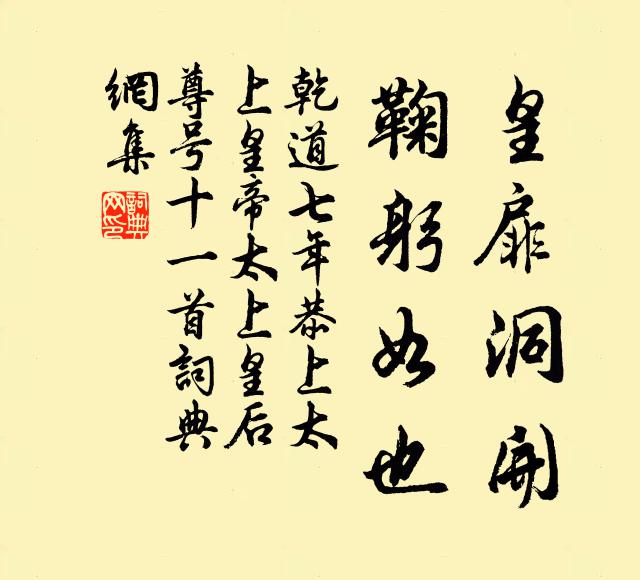 皇扉洞開
鞠躬如也
乾道七年恭上太
上皇帝太上皇后
尊号十一首詞典
網集
詞典網印